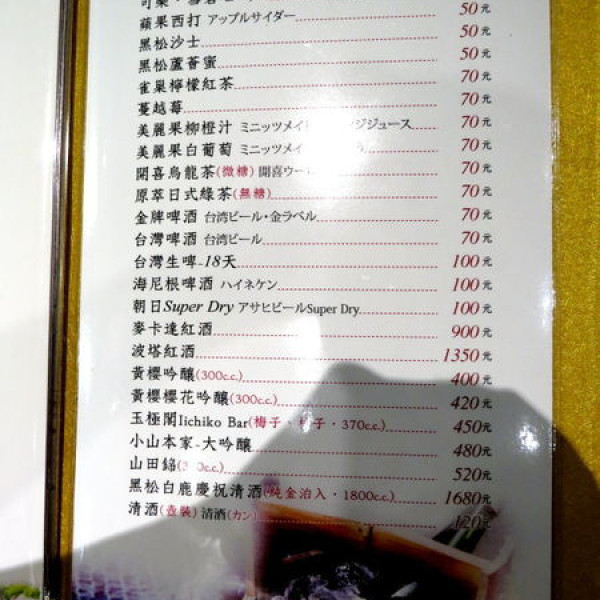 可樂・
蘋果西打 アップルサイダー 50元
黑松沙士 50元
黑松蘆薈蜜 50元
雀巢檸檬紅茶 70元
蔓越莓 70元
美麗果柳橙汁 ミニッツメイ ジジュース 70元
美麗果白葡萄 ミニッツメイ 70元
開喜烏龍茶(微糖) 開喜ウー 70元
原萃日式綠茶(無糖) 70元
金牌啤酒 台湾ビール・金ラベル 70元
台灣啤酒 台湾ビール 70元
台灣生啤-18天 100元
海尼根啤酒 ハイネケン 100元
朝日Super Dry アサヒビールSuper Dry 100元
麥卡達紅酒 900元
波塔紅酒 1350元
黃櫻吟釀(300c.c.) 400元
黃櫻櫻花吟釀(300c.c.) 420元
玉極閣Iichiko Bar(梅子・ 子・370c.c.) 450元
小山本家-大吟釀 480元
山田錦( 0c.c.) 520元
黑松白鹿慶祝清酒(純金泊入・1800c.c.) 1680元
清酒(壺裝) 清酒(カン) 120元